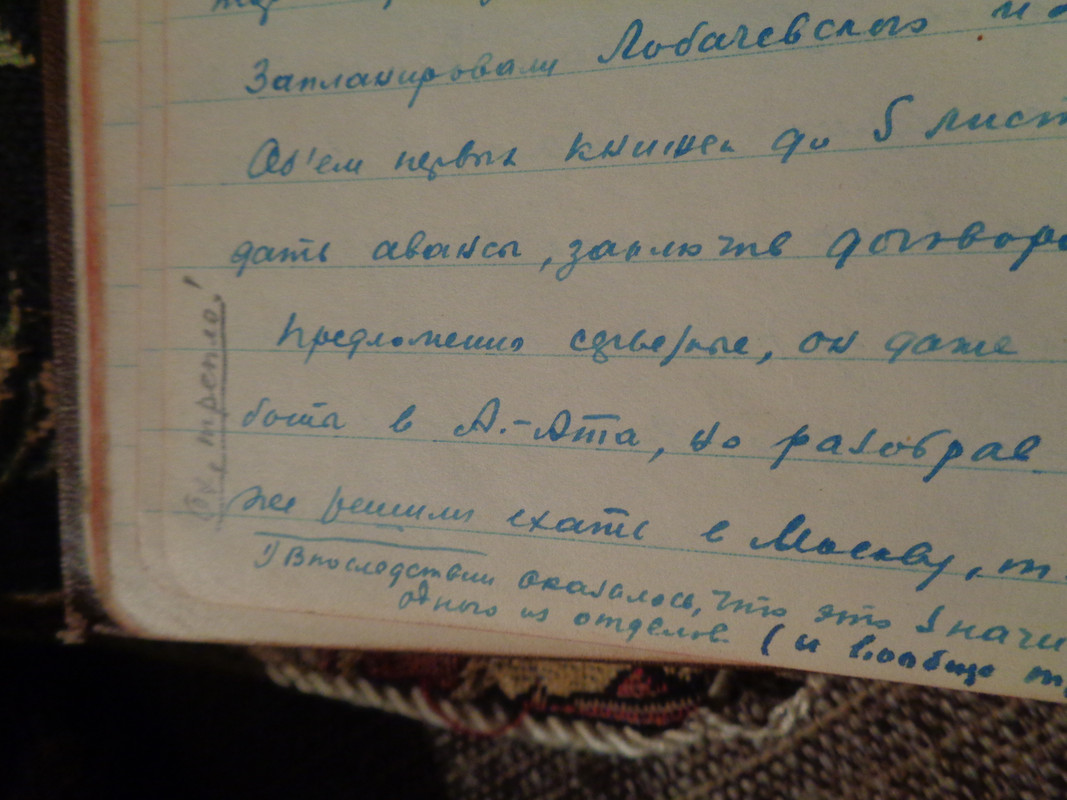 Запланировали Лобачевского и
Об'ем первых книжек до 5 лист
дать авансы, заключив договор
Предложение серьезные, он даже
боты в А.-Ата, но разобрав
же решили ехать в Москву,
1) Впоследствии оказалось, что это значи
одного из отделов (и вообще
трепло!